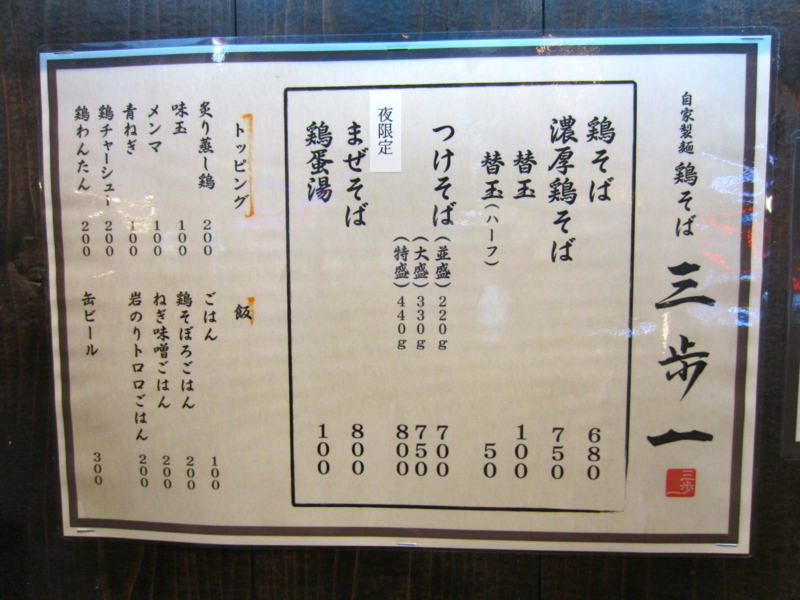 自家製麺 鶏そば 三歩一
三歩一
鶏そば 680
濃厚鶏そば 750
替玉 100
替玉(ハーフ) 50
つけそば(並盛)220g 700
(大盛)330g 750
(特盛)440g 800
夜限定
まぜそば 800
鶏蛋湯 100
トッピング
炙り蒸し鶏 200
味玉 100
メンマ 100
青ねぎ 100
鶏チャーシュー 200
鶏わんたん 200
飯
ごはん 100
鶏そぼろごはん 200
ねぎ味噌ごはん 200
岩のりトロロごはん 200
缶ビール 300